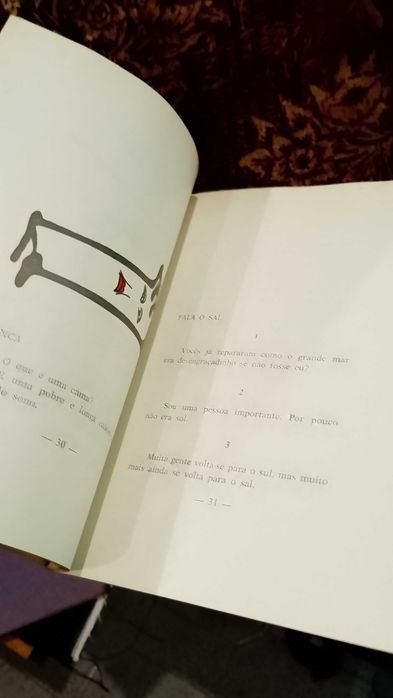 NÇA
O que é uma cama?
uma pobre e longa
sono.
— 30 —
FALA O SAL
1
Vocês já repararam como o grande mar
era desengraçadinho se não fosse eu?
2
Sou uma pessoa importante. Por pouco
não era sol.
3
Muita gente volta-se para o sul, mas muito
mais ainda se volta para o sal.
— 31 —